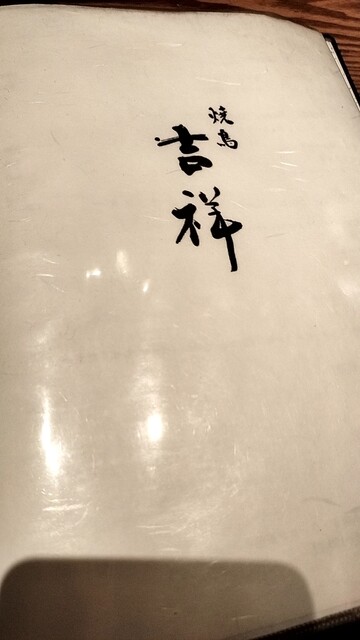 焼鳥
吉祥